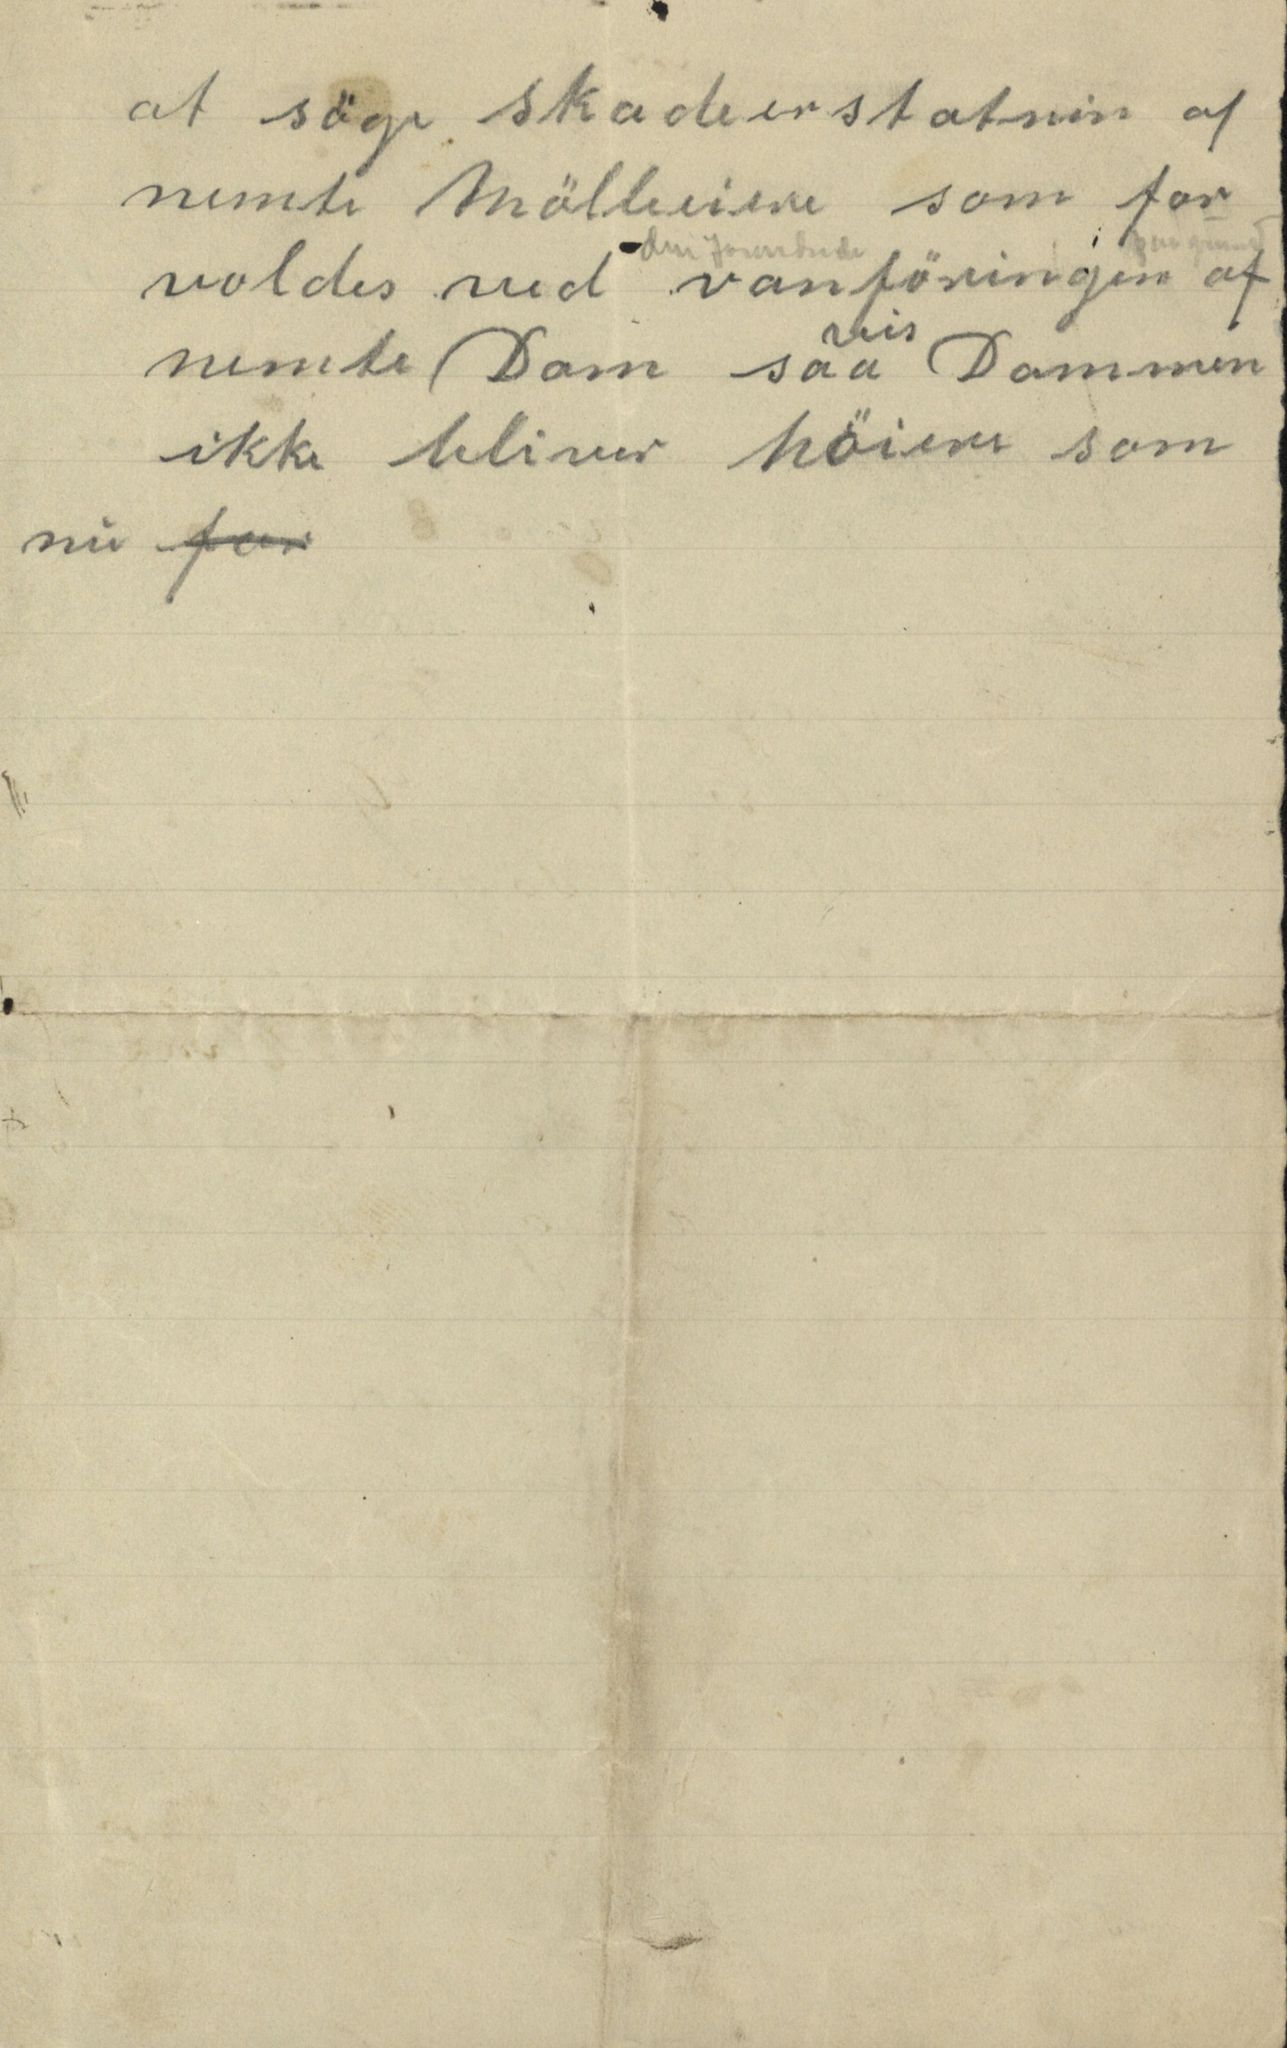 at söge skadeerstatnin af
nemte Mölleeiere som for
voldes ved vanföringen af
vis
nemte Dam såa Dammen
ikke bliver höiere som
nu for